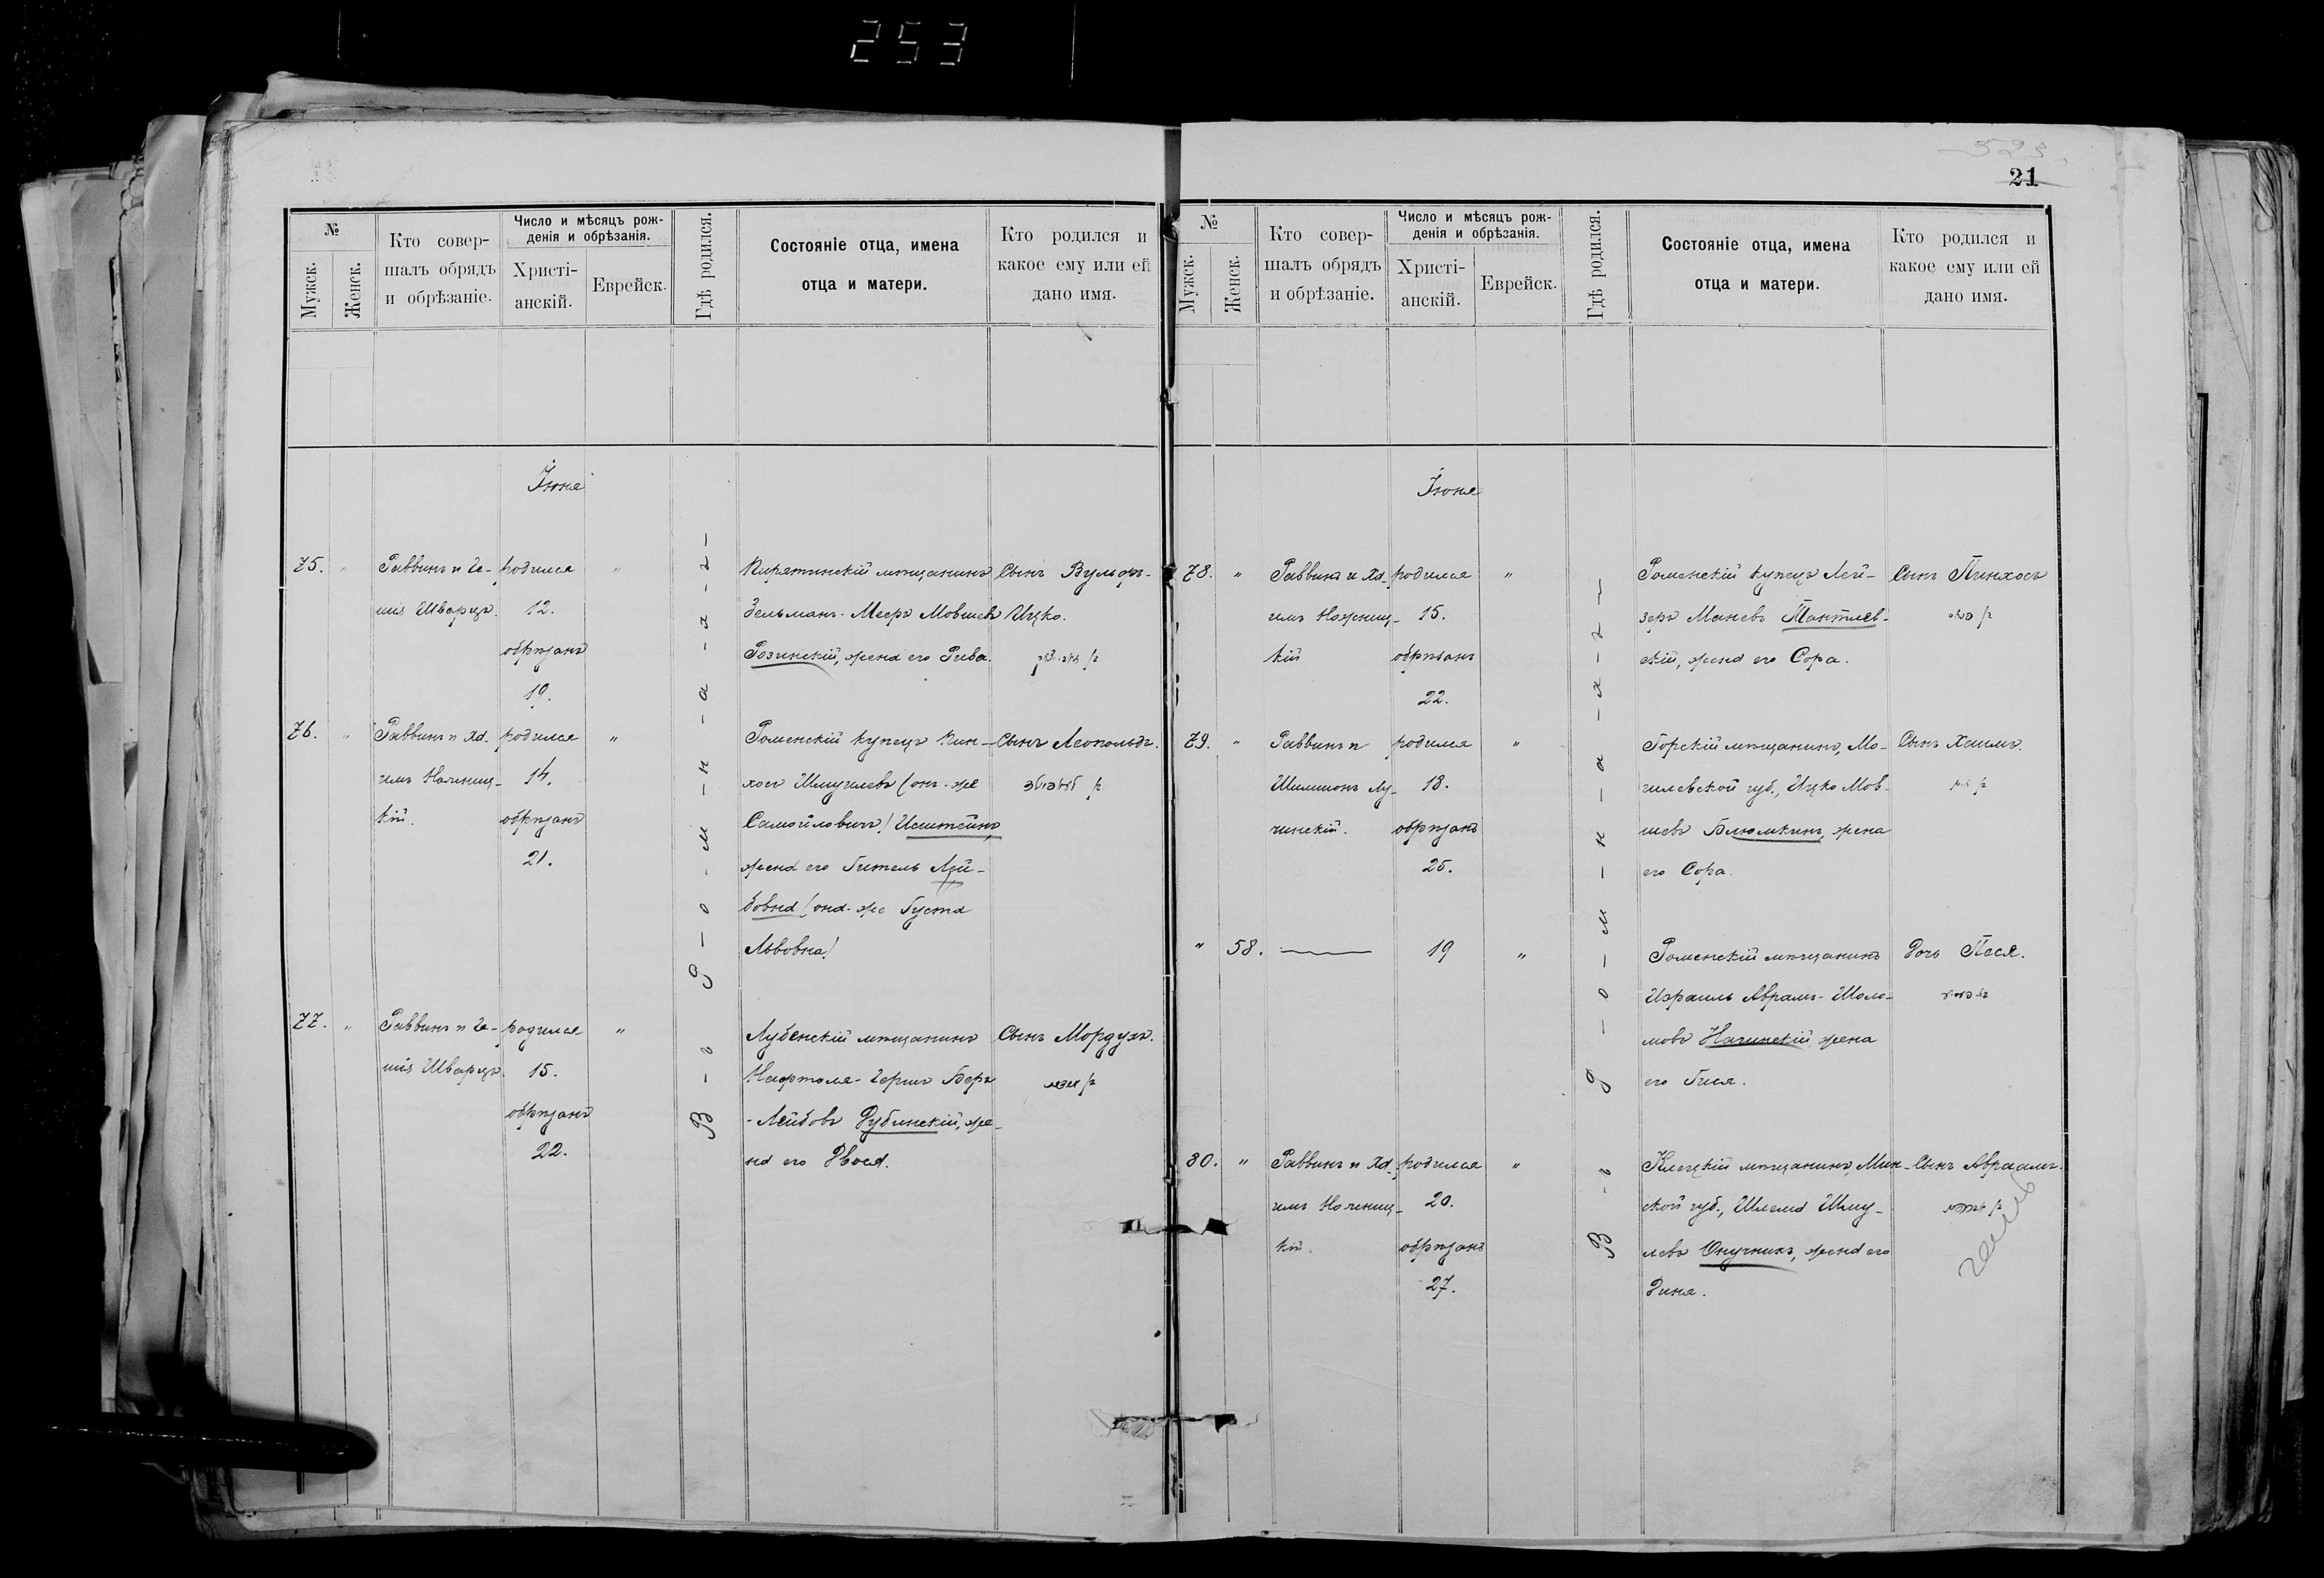 253
528
21
№
Мужск.
Женск.
Кто совер-
шалъ обрядъ
и обрѣзаніе.
Число и мѣсяцъ рож-
денія и обрѣзанія.
Христі-
анскій.
Еврейск.
Гдѣ родился.
Состояніе отца, имена
отца и матери.
Кто родился и
какое ему или ей
дано имя.
Іюня
В-о-д-о-м-н-а-х-ъ-
75. "
Раввинъ и Ге-
шія Шварцъ.
родился
12.
обрѣзанъ
19.
"
Пирятинскій мѣщанинъ
Зельманъ-Мееръ Мовшевъ
Розинскій, жена его Рива.
Сынъ Вульфъ-
Ицко.
76. "
Раввинъ и Ха-
имъ Ножниц-
кій.
родился
14.
обрѣзанъ
21.
"
Роменскій купецъ Пин-
хосъ Шмуилевъ (онъ-же
Самойловичъ)
жена его Гитель Лей-
бовна (она-же Густа
Львовна)
Сынъ Леопольдъ.
77. "
Раввинъ и Ге-
шія Шварцъ.
родился
15.
обрѣзанъ
22.
"
Лубенскій мѣщанинъ
Нафтоля-Гершъ Беръ
-Лейбовъ Дубинскій, же-
на его Двося.
Сынъ Мордухъ.
№
Мужск.
Женск.
Кто совер-
шалъ обрядъ
и обрѣзаніе.
Число и мѣсяцъ рож-
денія и обрѣзанія.
Христі-
анскій.
Еврейск.
Гдѣ родился.
Состояніе отца, имена
отца и матери.
Кто родился и
какое ему или ей
дано имя.
Іюня
78. "
Раввинъ и Ха-
имъ Ножниц-
кій
родился
15.
обрѣзанъ
22.
"
Роменскій купецъ Лей-
зеръ Маневъ Пантиев-
скій, жена его Сора.
Сынъ Пинхосъ
79. "
Раввинъ и
Шимшонъ Лу-
чинскій.
родился
18.
обрѣзанъ
25.
"
Горскій мѣщанинъ, Мо-
гилевской губ., Ицко Мов-
шевъ Блюмкинъ, жена
его Сора.
Сынъ Хаимъ.
" 58.
19
"
Роменскій мѣщанинъ
Израиль Аврамъ-Шоло-
мовъ Начинскій, жена
его Гися.
Дочь Песя.
80. "
Раввинъ и Ха-
имъ Ножниц-
кій.
родился
20.
обрѣзанъ
27.
"
Клецкій мѣщанинъ, Мин-
ской губ., Шлема Шму-
левъ Онучникъ, жена его
Дина.
Сынъ Авраамъ.